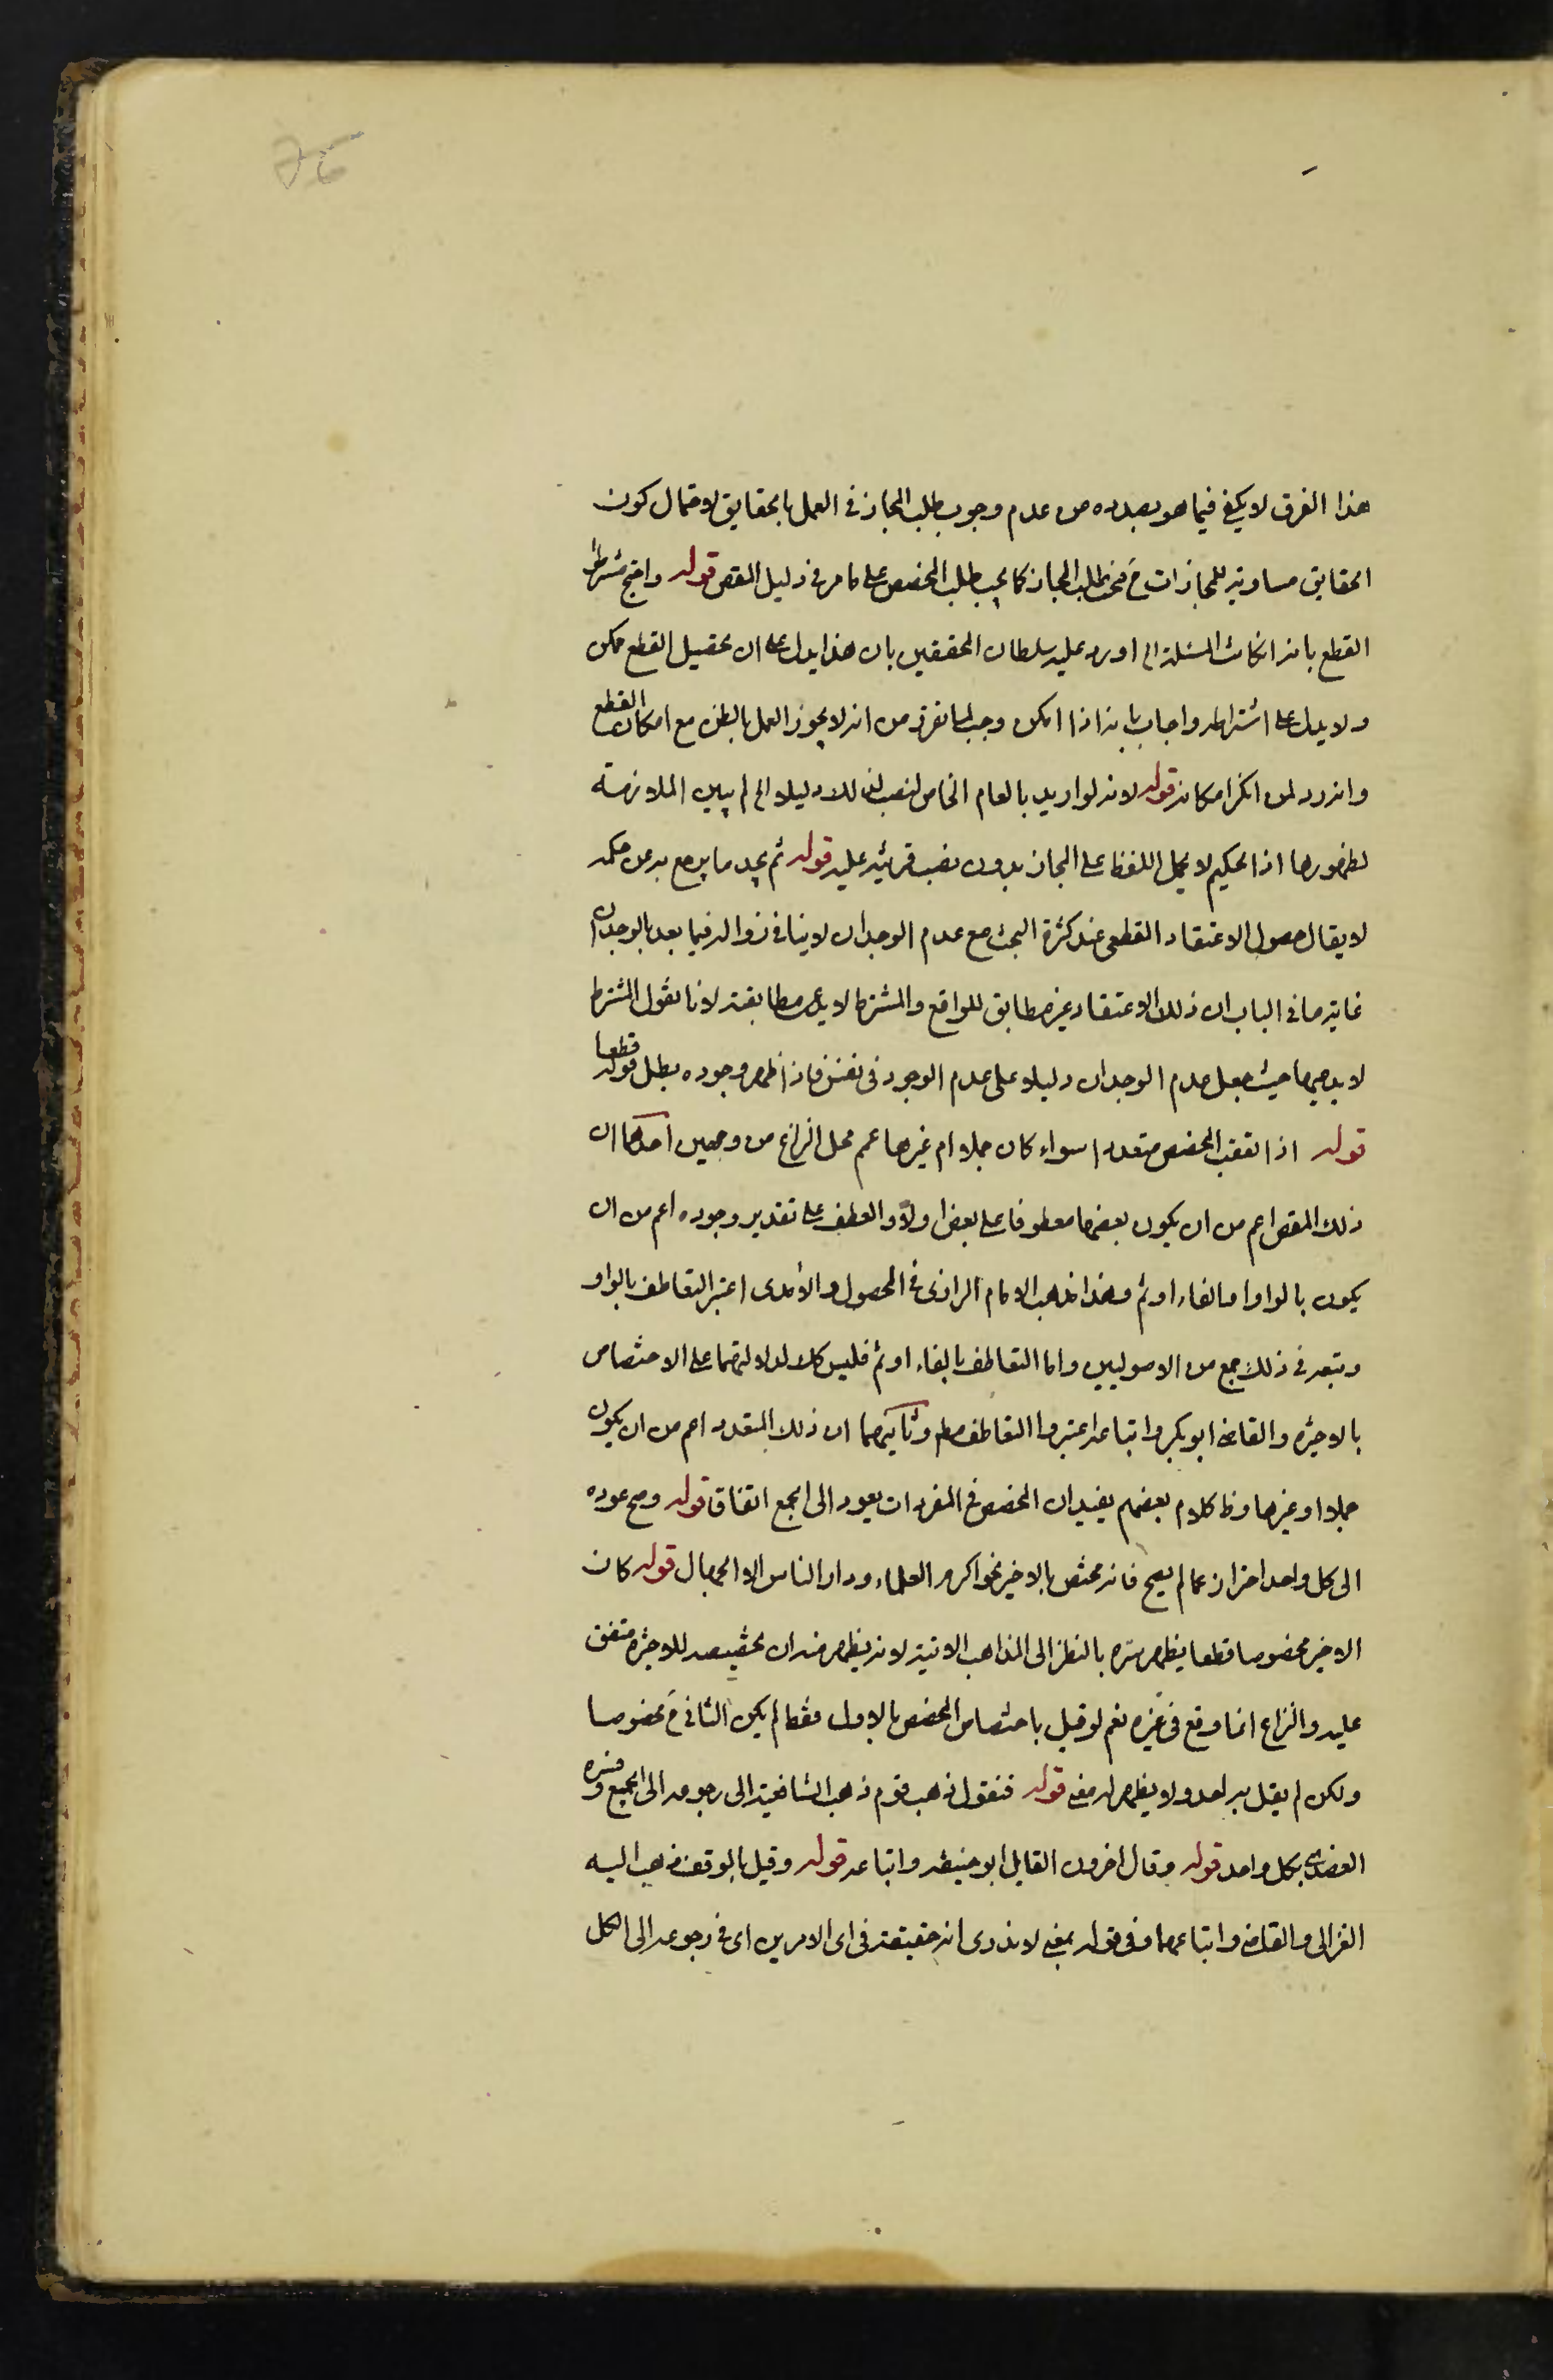 هذا الفرق لا يكفي فيما هو بصدده من عدم وجوب طلب المجاز في العمل بالحقايق لاحتمال كون
الحقايق مساوية للمجازات ح فيجب طلب المجاز كما يجب طلب المخصص على ما مر في دليل القوله واحتج مشترط
القطع بانه ان كانت المسئلة الى اورد عليه سلطان المحققين بان هذا يدل على ان تحصيل القطع ممكن
ولا يدل على اشتراطه واجاب بانه اذا امكن وجب لما تقرر من انه لا يجوز العمل بالظن مع امكان القطع
وانه رد لمن انكر امكانه قوله لانه لو اريد بالعام الخاص لنصب لذلك دليلا الى لم يبين الملازمة
لظهورها اذ الحكيم لا يحمل اللفظ على المجاز بدون نصب قرينة عليه قوله ثم يجد ما يرجع به عن حكمه
لا يقال حصول الاعتقاد القطعي عند كثرة البحث مع عدم الوجدان لا ينافي زواله فيما بعد بالوجدان
غاية ما في الباب ان ذلك الاعتقاد غير مطابق للواقع والمشترط لا يدعي مطابقته لانا نقول المشترط
لا يدعيها حيث جعل عدم الوجدان دليلا على عدم الوجود في نفسه فاذا ظهر وجوده بطل قوله قطعا
قوله اذا تعقب المخصص متعددا سواء كان جملا ام غيرها عمم محل النزاع من وجهين احدهما ان
ذلك المتعدد اعم من ان يكون بعضها معطوفا على بعض اولا والعطف على تقدير وجوده اعم من ان
يكون بالواو او بالفاء او ثم وهذا مذهب الامام الرازي في المحصول والآمدي اعتبر التعاطف بالواو
وتبعه في ذلك جمع من الاصوليين واما التعاطف بالفاء او ثم فليس كذلك لدلالتهما على الاختصاص
بالاخيرة والقاضي ابو بكر واتباعه اعتبروا التعاطف مطلقا وثانيهما ان ذلك المتعدد اعم من ان يكون
جملا او غيرها وظ كلام بعضهم يفيد ان المخصص في المفردات يعود الى الجمع اتفاقا قوله وصح عوده
الى كل واحد احتراز عما لم يصح فانه مختص بالاخير نحو اكرم العلماء ودار الناس الا الجهال قوله كان
الاخير مخصوصا قطعا يظهر سره بالنظر الى المذاهب الاتية لانه يظهر منه ان تخصيصه للاخيرة متفق
عليه والنزاع انما وقع في غيره نعم لو قيل باختصاص المخصص بالاول فقط لم يكن الثاني ح مخصوصا
ولكن لم يقل به احد ولا يظهر له معنى قوله فنقول ذهب قوم ذهب الشافعية الى رجوعه الى الجميع وفسره
العضدي بكل واحد قوله وقال اخرون القايل ابو حنيفة واتباعه قوله وقيل بالوقف ذهب اليه
الغزالي والقاضي واتباعهما وفي قوله بمعنى لا ندري انه حقيقة في اي الامرين اي في رجوعه الى الكل